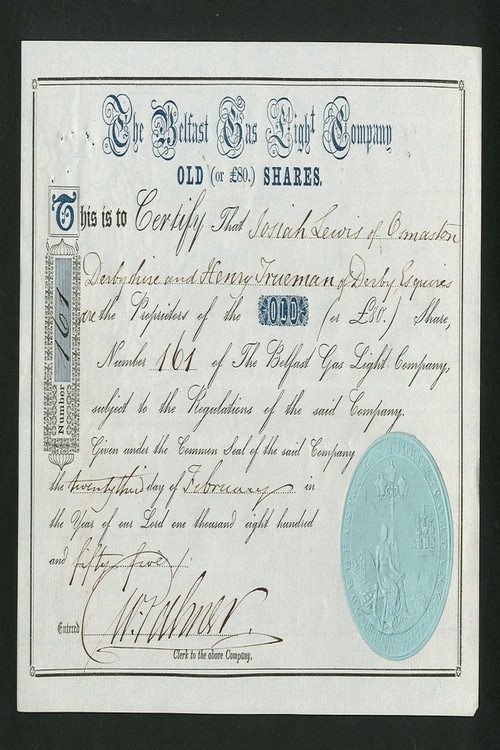 The Belfast Gas Light Company
OLD (or £80.) SHARES.
This is to Certify That Josiah Lewis of Osmaston
Derbyshire and Henry Trueman of Derby Esquires
are the Proprietors of the OLD (or £80.) Share,
Number 161 of The Belfast Gas Light Company,
subject to the Regulations of the said Company.
Given under the Common Seal of the said Company
the twenty third day of February in
the Year of our Lord one thousand eight hundred
and fifty five
Entered
Clerk to the above Company.
Number 161